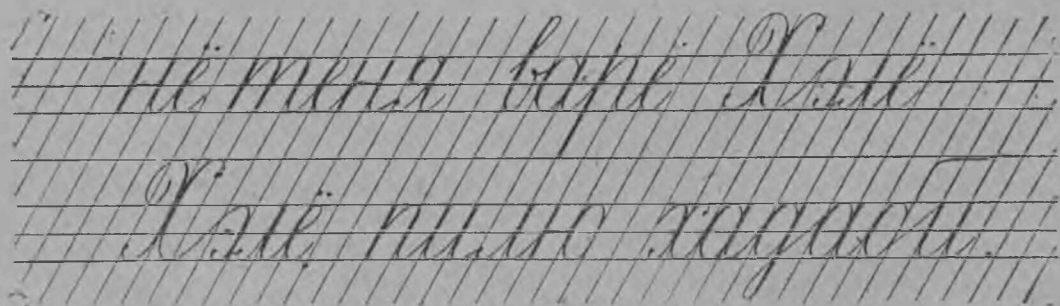 нё теня варё Хэлё
Хэлё пилю хадаби.